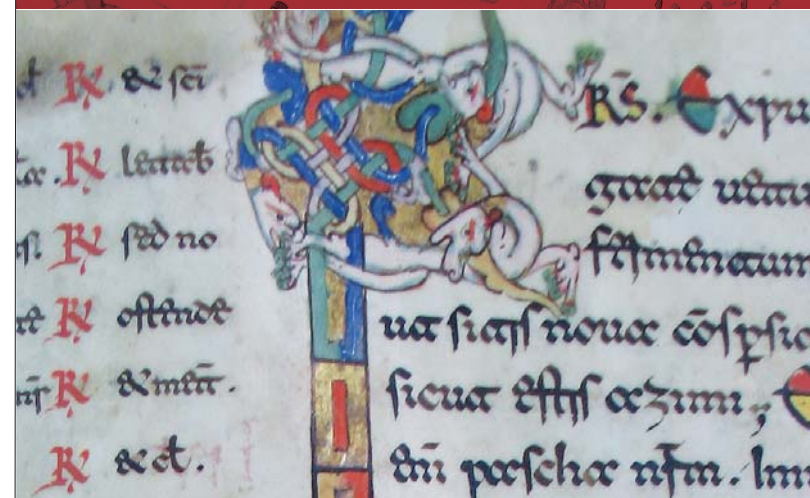 ℟ & sci
℟ letab
℟ sed no
℟ ostende
℟ &
℟ & cl.
R̄S. Expu
gate uetu
fermentum
ut sitis noua cōsp̱sio
sicut estis azimi; E
em̄ pascha nr̄m. Im